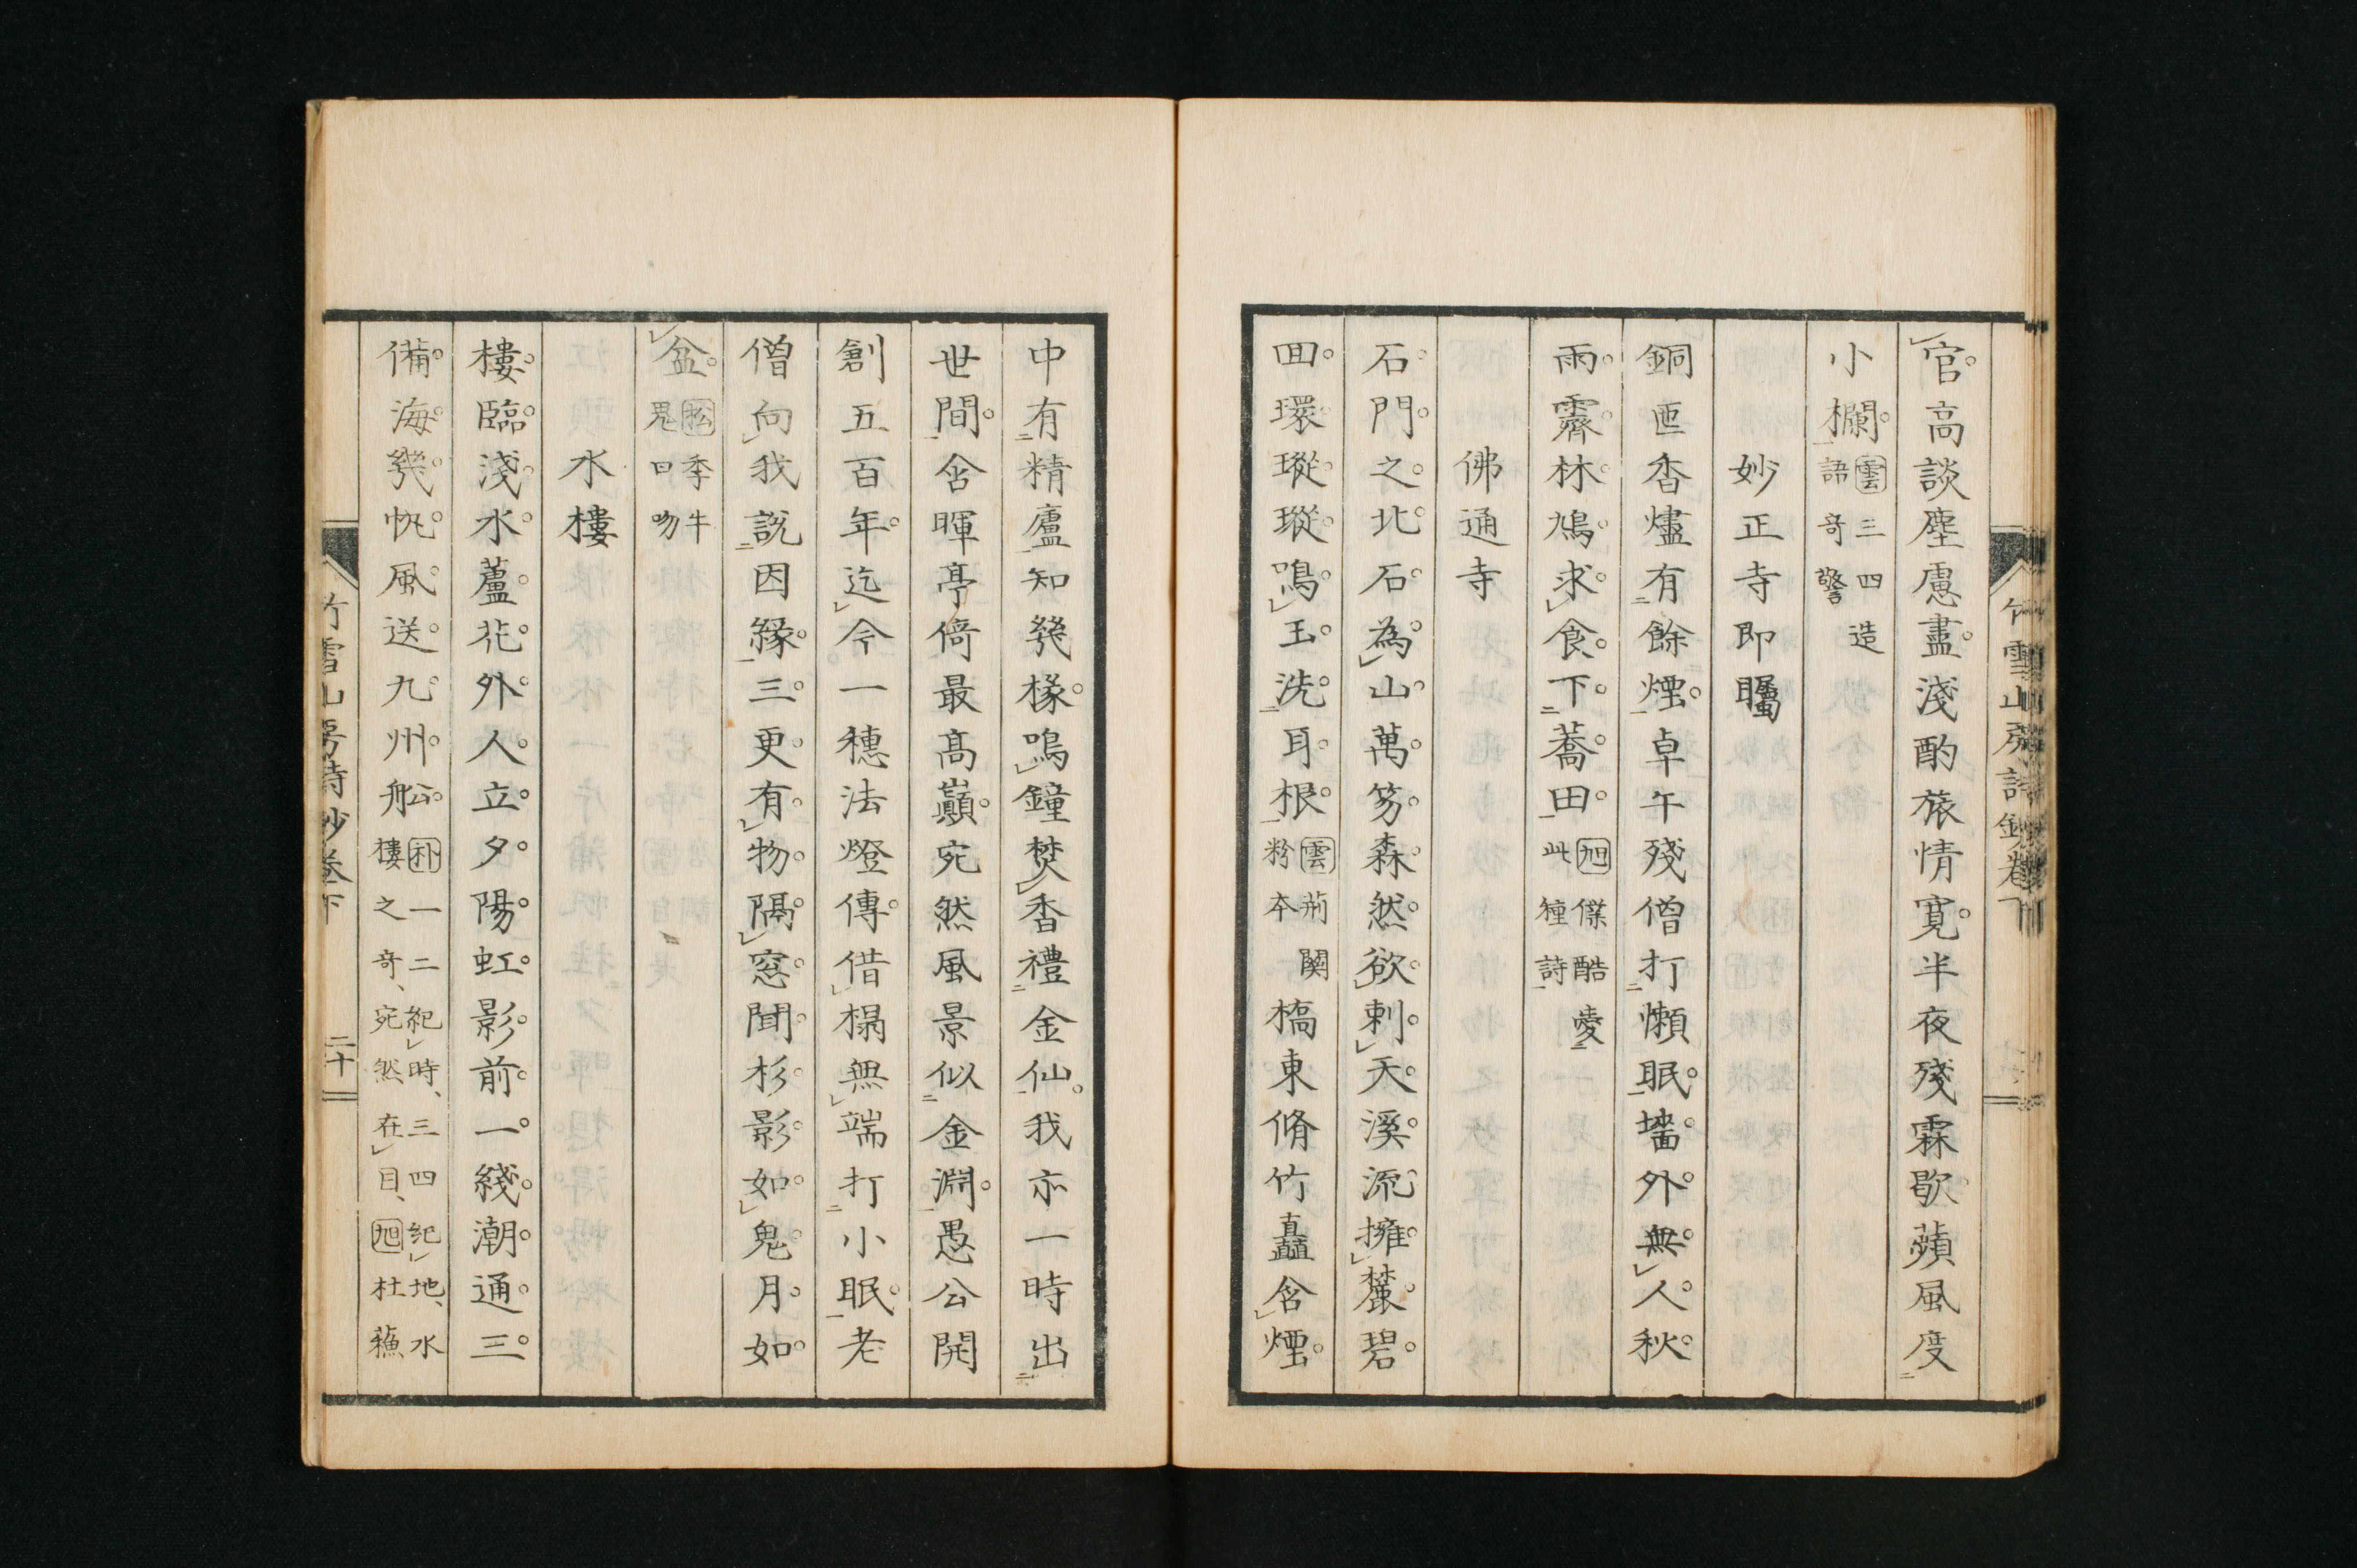 官高談塵慮盡淺酌旅情寬半夜殘霖歇蘋風度
小欄雲三四造語奇警
妙正寺即矚
銅匜香燼有餘煙卓午殘僧打懶眠墻外無人秋
雨霽林鳩求食下蕎田旭傑酷愛此種詩
佛通寺
石門之北石為山萬笏森然欲刺天溪流擁麓碧
回環瑽瑽鳴玉洗耳根雲荊關粉本橋東脩竹矗含煙
中有精廬知幾椽鳴鐘焚香禮金仙我亦一時出
世間含暉亭倚最高巔宛然風景似金淵愚公開
創五百年迄今一穗法燈傳借榻無端打小眠老
僧向我說因緣三更有物隔窓聞杉影如鬼月如
盆松季牛鬼口吻
水樓
樓臨淺水蘆花外人立夕陽虹影前一綫潮通三
備海幾帆風送九州船朴一二紀時、三四紀地、水樓之奇、宛然在目、旭杜蘓
竹雪山房詩鈔卷下
二十